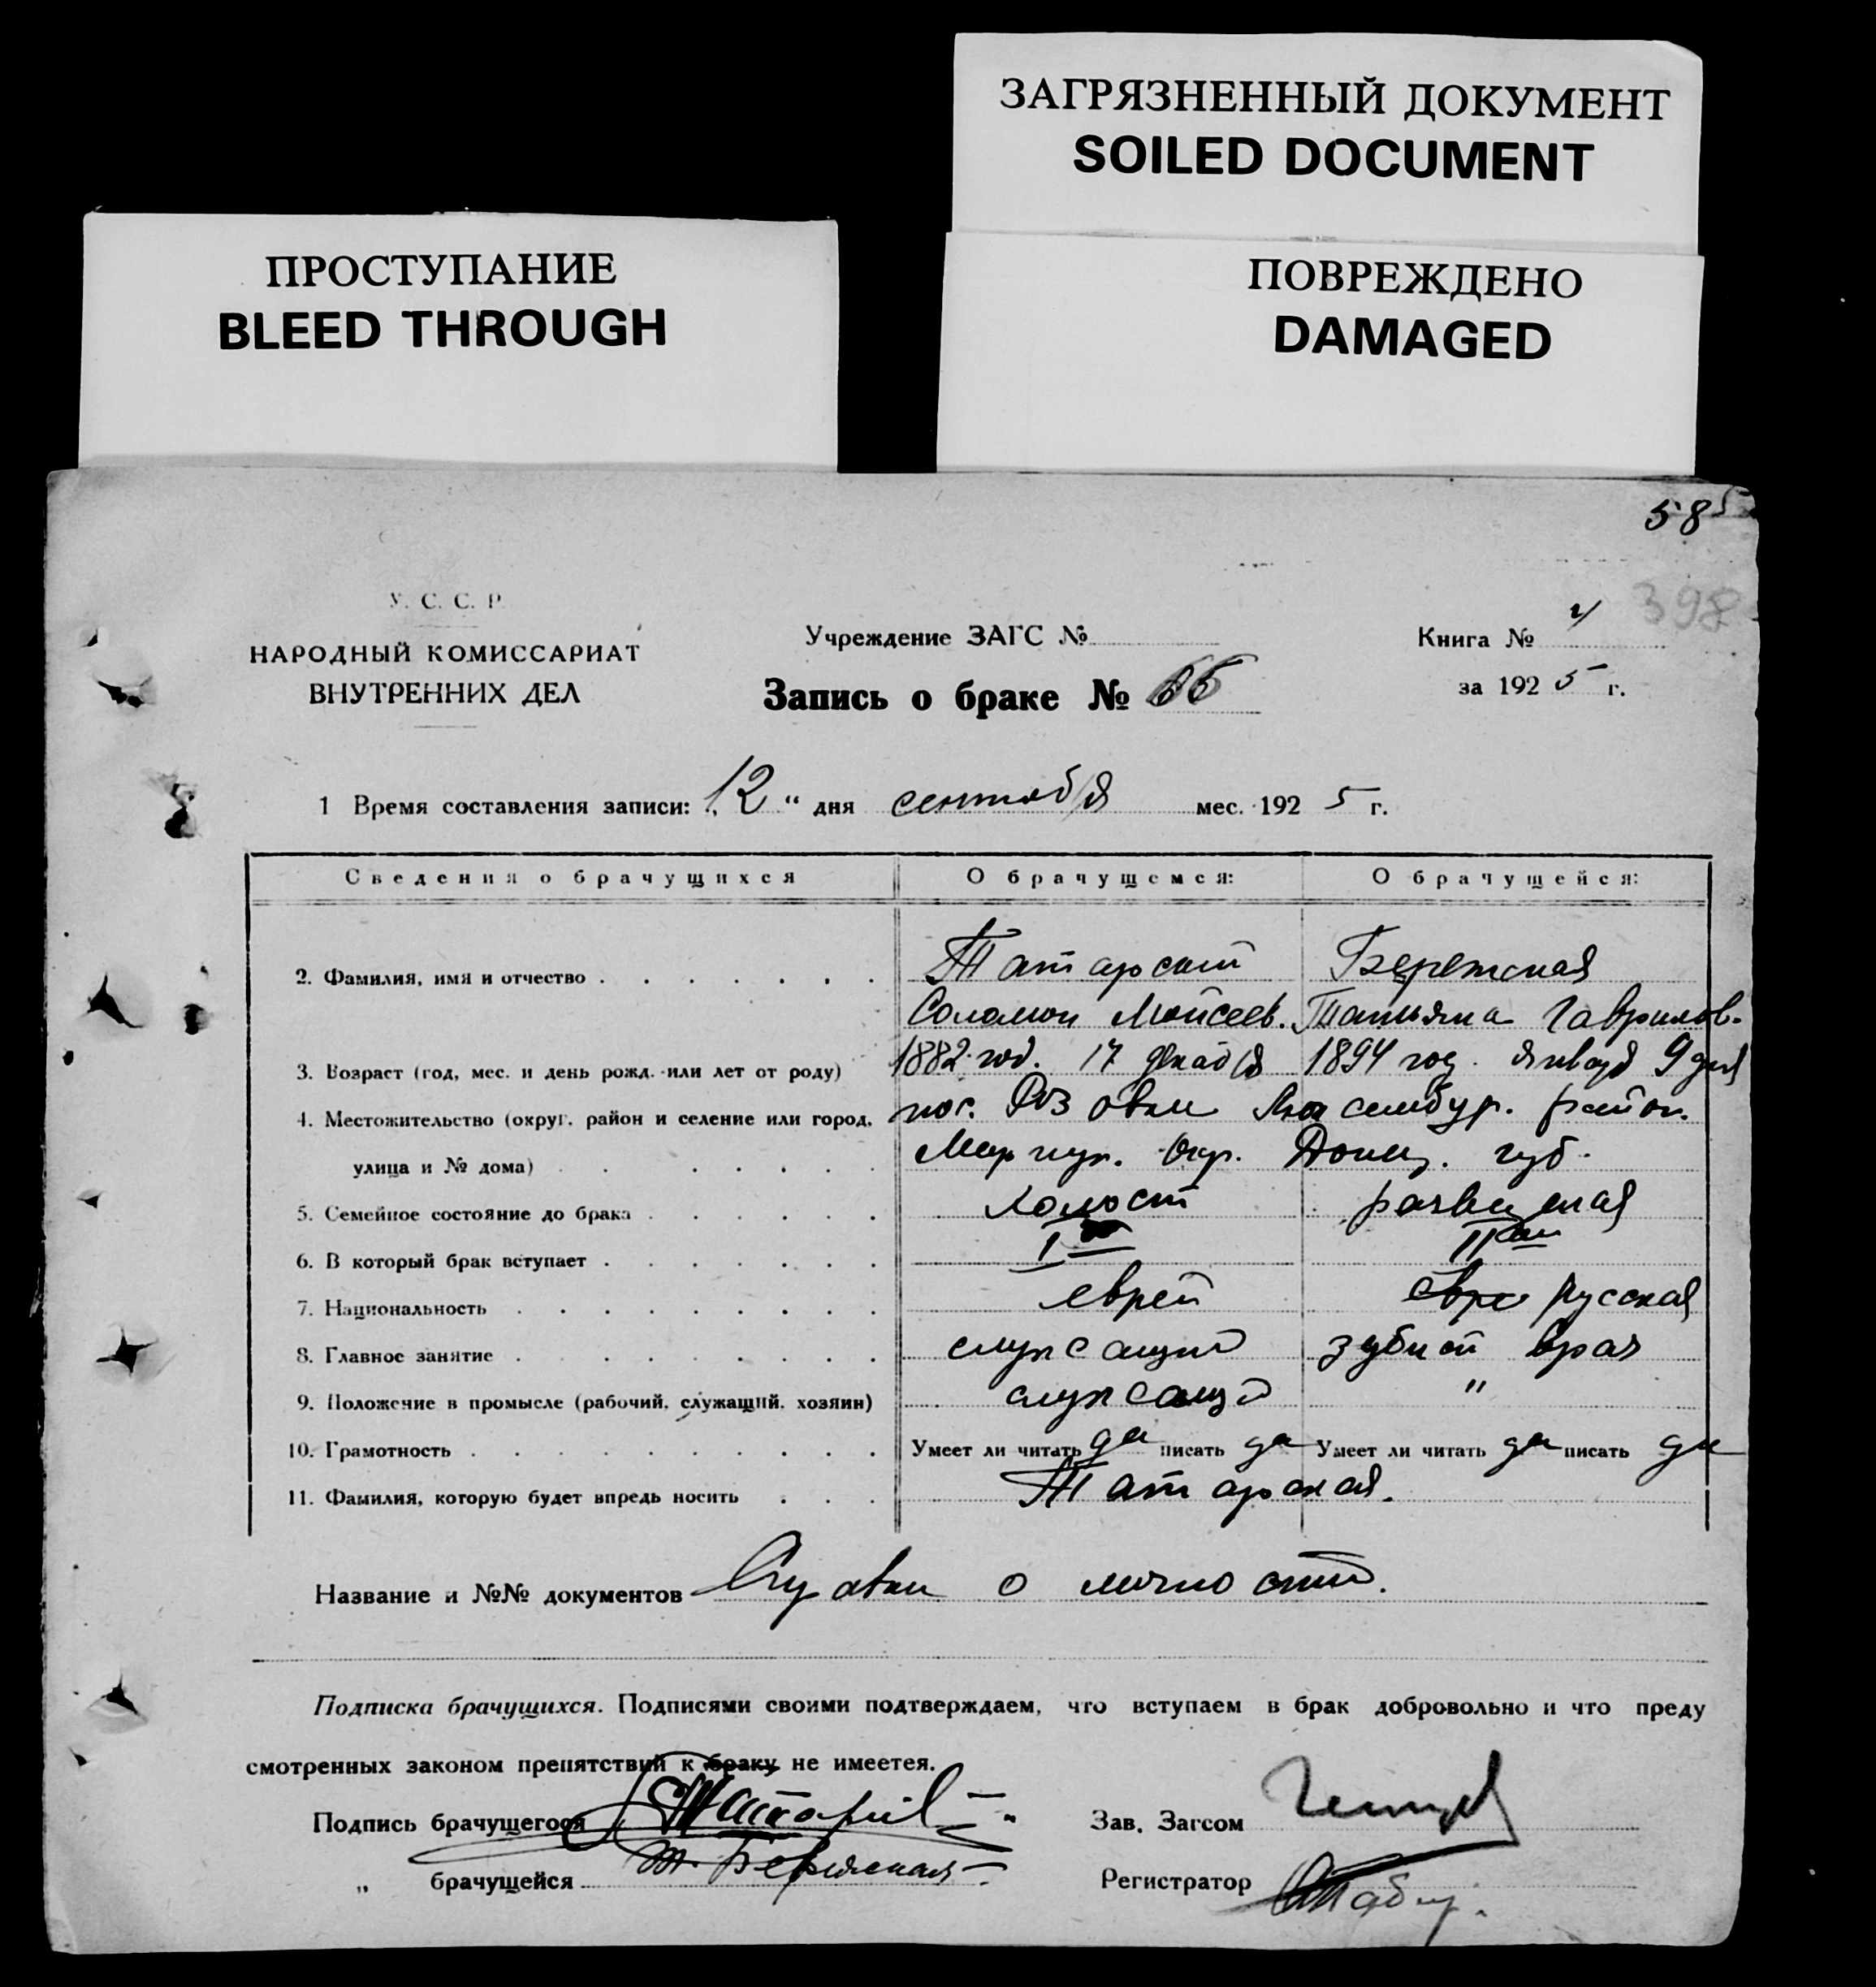 ЗАГРЯЗНЕННЫЙ ДОКУМЕНТ
SOILED DOCUMENT
ПРОСТУПАНИЕ
BLEED THROUGH
ПОВРЕЖДЕНО
DAMAGED
58
398
У. С. С. Р.
НАРОДНЫЙ КОМИССАРИАТ
ВНУТРЕННИХ ДЕЛ
Учреждение ЗАГС №
Запись о браке № 66
Книга №
за 1925 г.
1 Время составления записи: „12“ дня сентября мес. 1925 г.
Сведения о брачущихся О брачущемся: О брачущейся:
2. Фамилия, имя и отчество Татарский Бережская
Соломон Мойсеев. Татьяна Гаврилов.
3. Возраст (год, мес. и день рожд. или лет от роду) 1882 год. 17 декабря 1894 год. января 9 дня
4. Местожительство (округ, район и селение или город, пос. Розовки Люксембур. район.
улица и № дома) Мариуп. Окр. Донец. губ.
5. Семейное состояние до брака холост разведеная
6. В который брак вступает I II ой
7. Национальность еврей евре русская
8. Главное занятие служащий зубной врач
9. Положение в промысле (рабочий, служащий, хозяин) служащий "
10. Грамотность Умеет ли читать да писать да Умеет ли читать да писать да
11. Фамилия, которую будет впредь носить Татарская.
Название и №№ документов Справки о личности.
Подписка брачущихся. Подписями своими подтверждаем, что вступаем в брак добровольно и что преду
смотренных законом препятствий к браку не имеется.
Подпись брачущегося
Зав. Загсом
„ брачущейся Т. Бережская
Регистратор